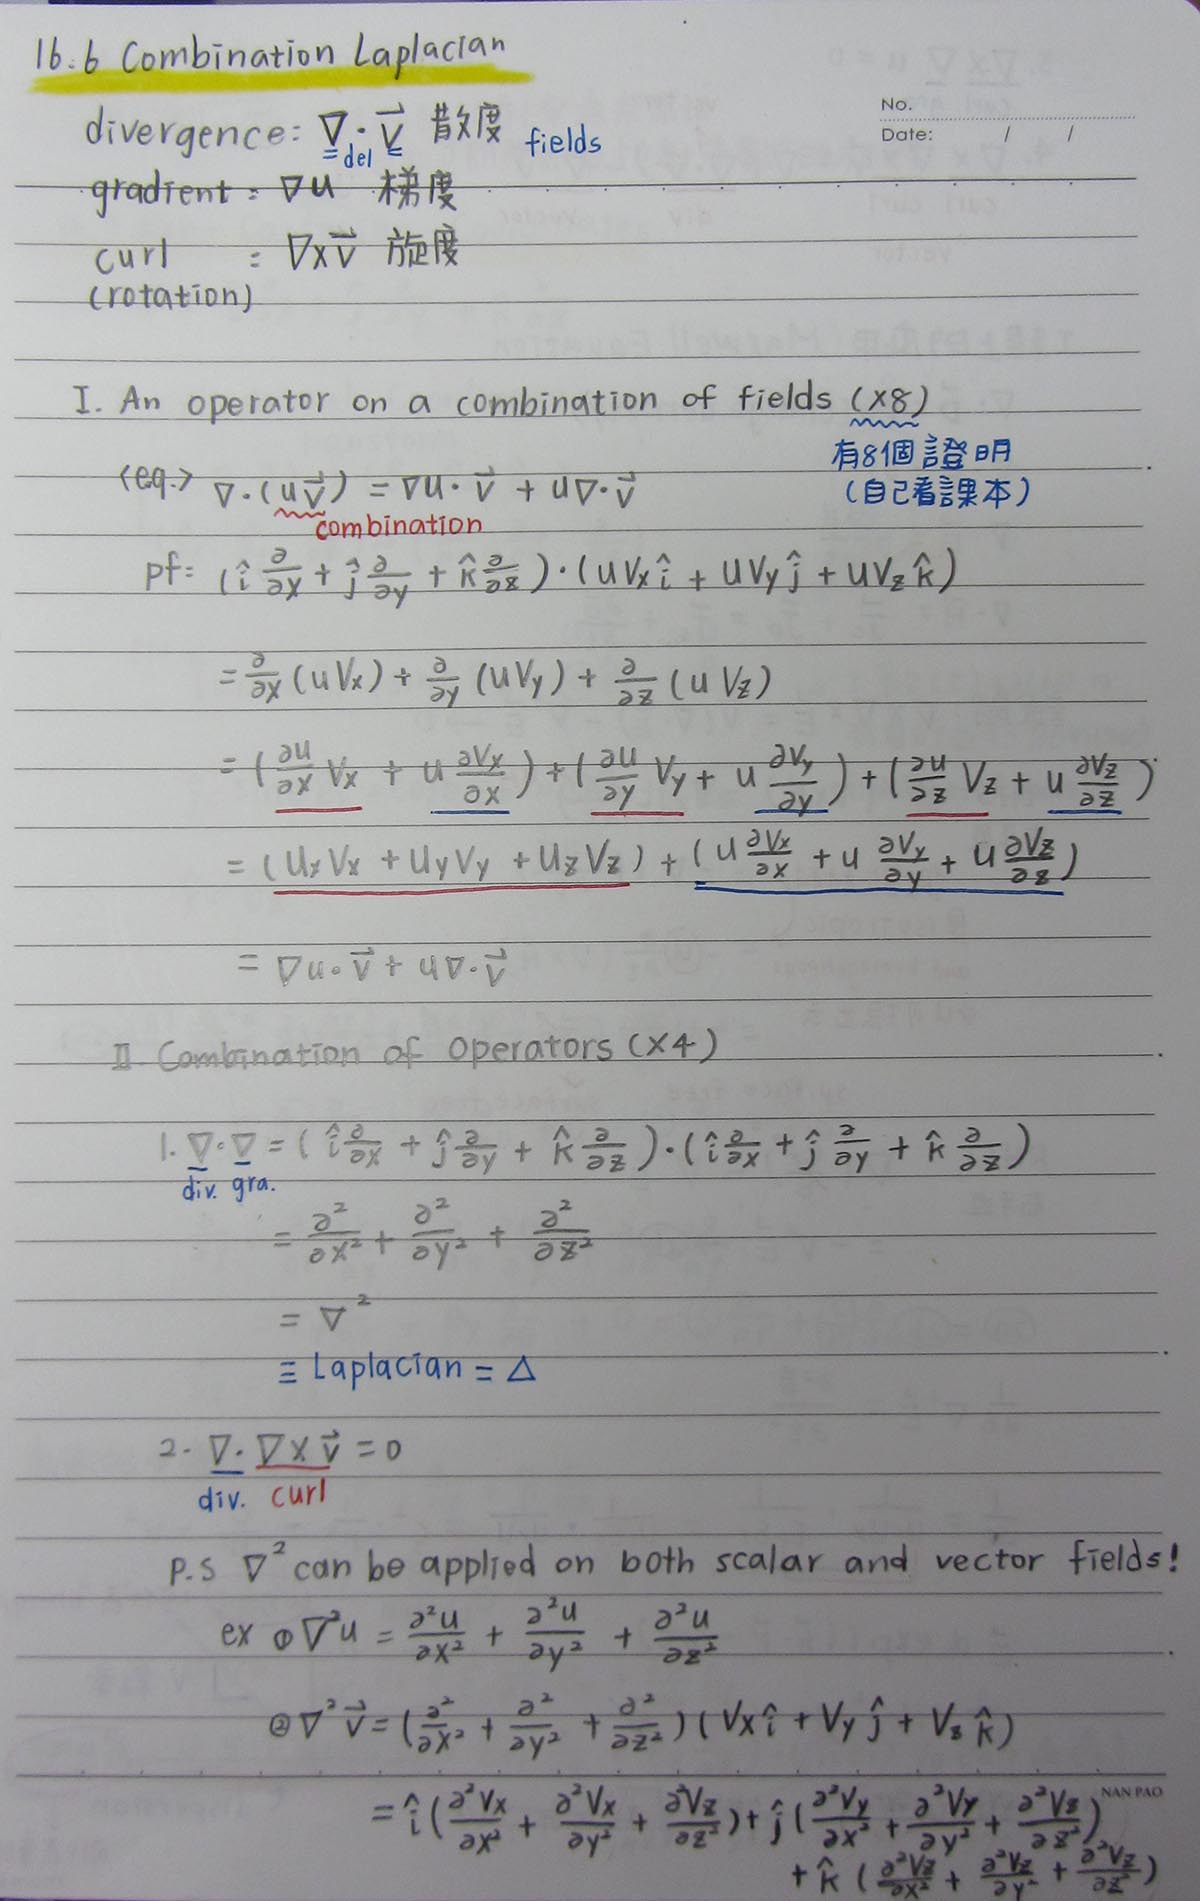 16.6 Combination Laplacian
No.
Date: / /
divergence: ∇·v⃗ 散度 fields
del
gradient: ∇u 梯度
curl : ∇×v⃗ 旋度
(rotation)
I. An operator on a combination of fields (×8)
有8個證明
(自己看課本)
(eg.) ∇·(uv⃗) = ∇u·v⃗ + u∇·v⃗
combination
pf: (î ∂/∂x + ĵ ∂/∂y + k̂ ∂/∂z)·(uVx î + uVy ĵ + uVz k̂)
= ∂/∂x (uVx) + ∂/∂y (uVy) + ∂/∂z (uVz)
= (∂u/∂x Vx + u ∂Vx/∂x) + (∂u/∂y Vy + u ∂Vy/∂y) + (∂u/∂z Vz + u ∂Vz/∂z)
= (UxVx + UyVy + UzVz) + (u ∂Vx/∂x + u ∂Vy/∂y + u ∂Vz/∂z)
= ∇u·v⃗ + u∇·v⃗
II. Combination of operators (×4)
1. ∇·∇ = (î ∂/∂x + ĵ ∂/∂y + k̂ ∂/∂z)·(î ∂/∂x + ĵ ∂/∂y + k̂ ∂/∂z)
div. gra.
= ∂²/∂x² + ∂²/∂y² + ∂²/∂z²
= ∇²
≡ Laplacian = Δ
2. ∇·∇×v⃗ = 0
div. curl
P.S ∇² can be applied on both scalar and vector fields!
ex ① ∇²u = ∂²u/∂x² + ∂²u/∂y² + ∂²u/∂z²
② ∇²v⃗ = (∂²/∂x² + ∂²/∂y² + ∂²/∂z²)(Vx î + Vy ĵ + Vz k̂)
NAN PAO
= î(∂²Vx/∂x² + ∂²Vx/∂y² + ∂²Vz/∂z²) + ĵ(∂²Vy/∂x² + ∂²Vy/∂y² + ∂²Vz/∂z²)
+ k̂(∂²Vz/∂x² + ∂²Vz/∂y² + ∂²Vz/∂z²)